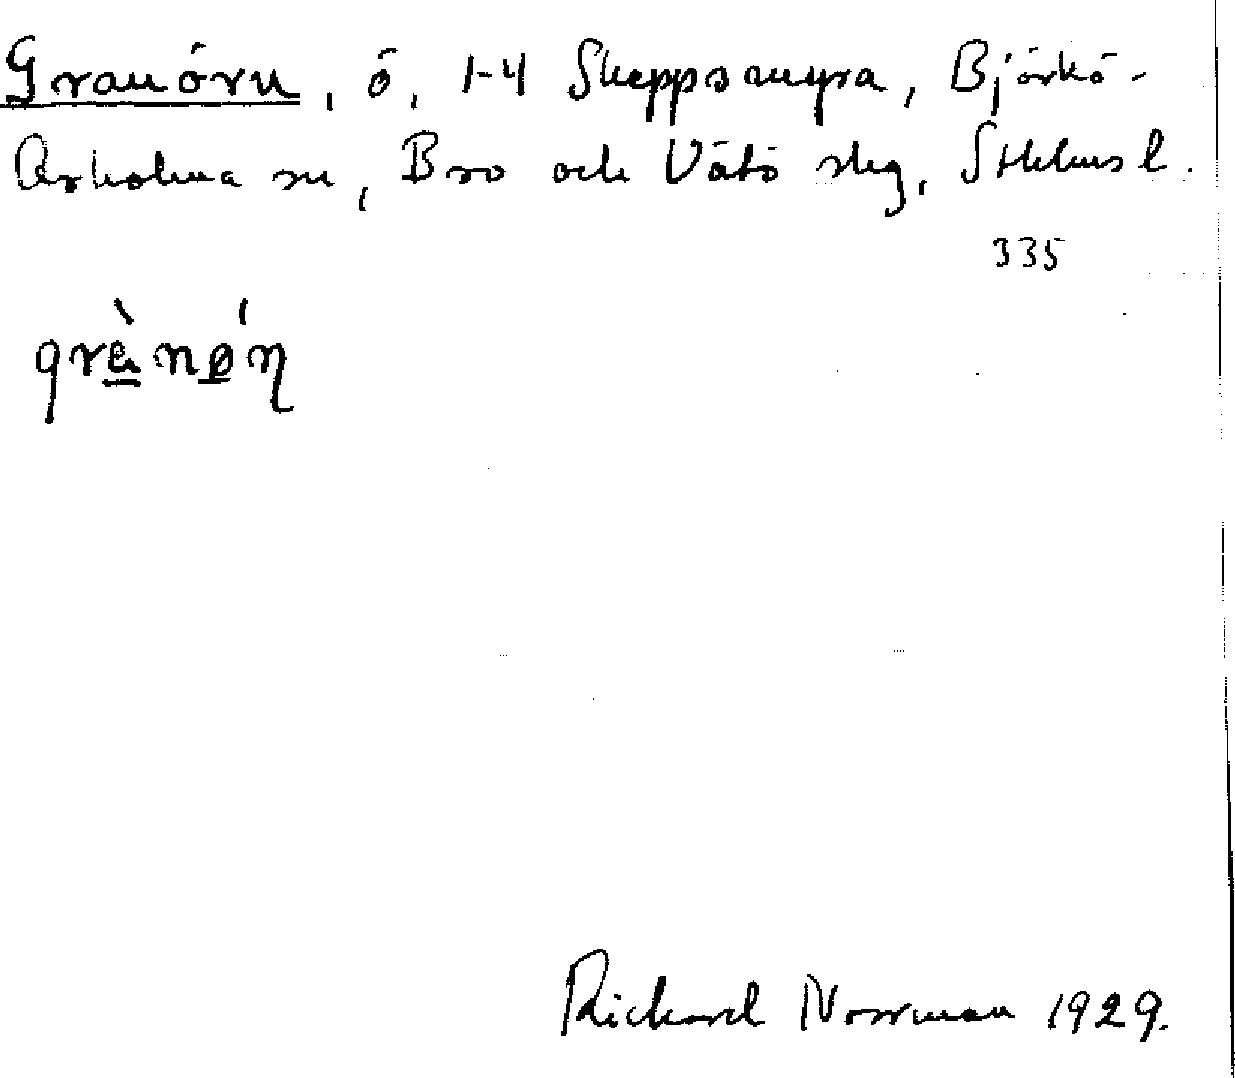 Granörn, ö, 1-4 Skeppsmyra, Björkö-
Arholma sn, Bro och Vätö skg, Sthlms l.
335
grànǿŋ
Richard Norrman 1929.